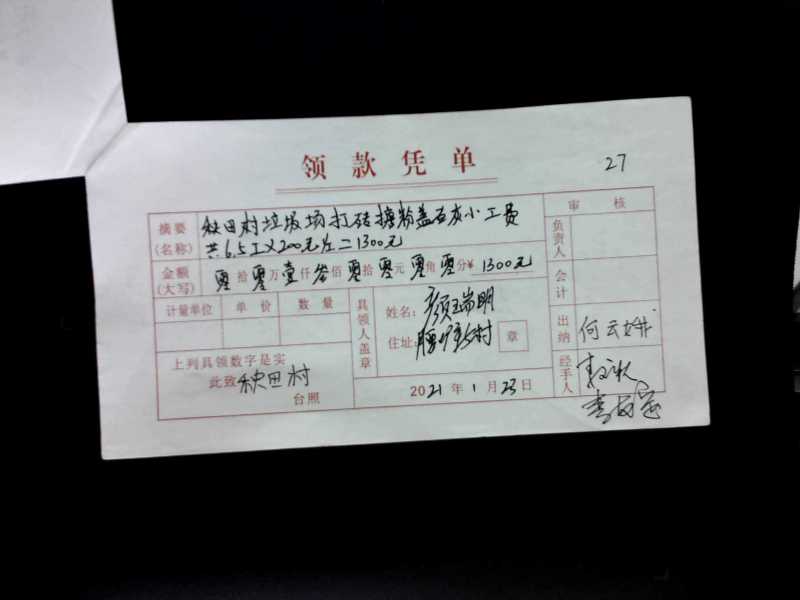 领款凭单
27
摘要(名称) 秧田村垃圾场打砖搪粉盖石灰小工员
共6.5工×200元/工=1300元
金额(大写) 零拾零万壹仟叁佰零拾零元零角零分¥ 1300元
计量单位 单价 数量
上列具领数字是实
此致 秧田村
台照
具领人盖章
姓名: 颜瑞明
住址: 村 章
2021年1月23日
审核
负责人
会计
出纳 何云
经手人 李